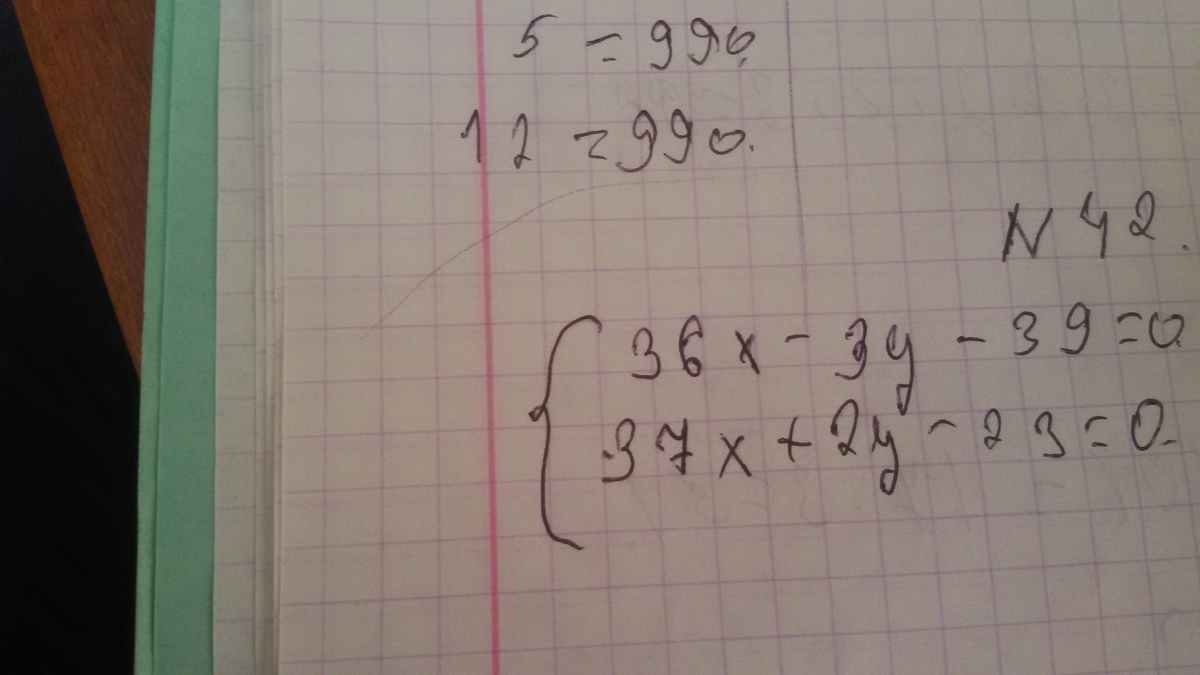 5 = 990.
12 = 990.
N 42.
36x - 3y - 39 = 0
37x + 2y - 23 = 0.